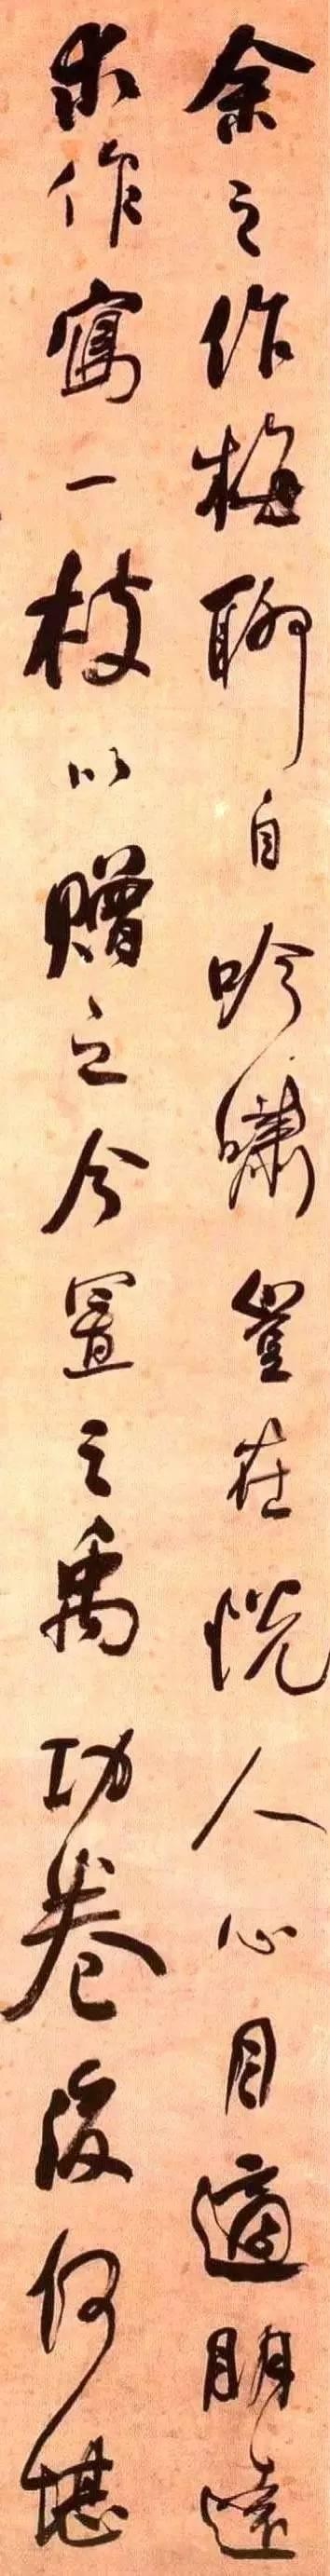 余之作梅聊自吟嘯豈在悦人心目適朋遠
求作寫一枝以贈之今置之禹功卷後何堪